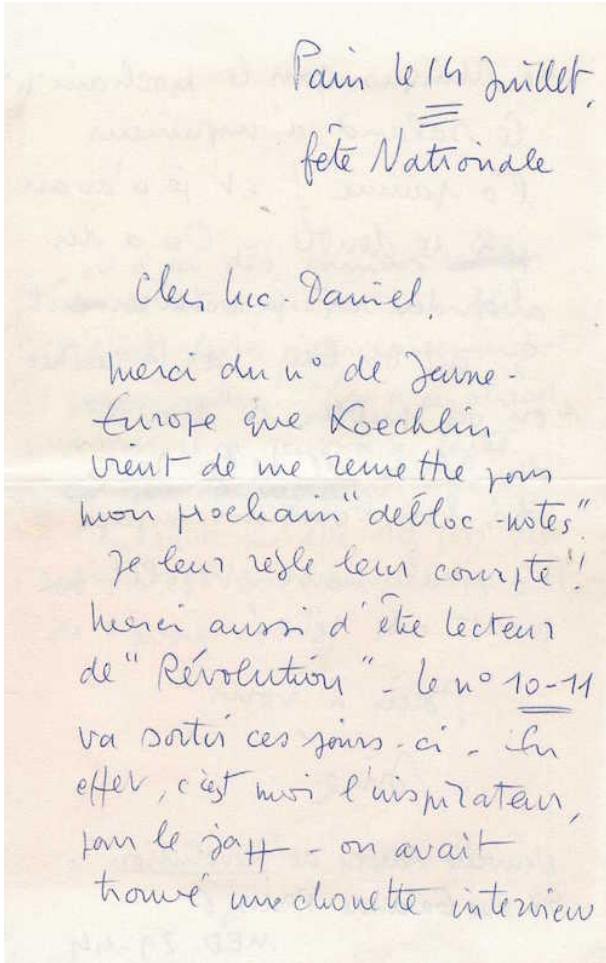 Paris le 14 Juillet,
fête Nationale
Cher Luc-Daniel,
merci du n° de Jeune-
Europe que Koechlin
vient de me remettre pour
mon prochain "débloc-notes".
Je leur règle leur compte !
Merci aussi d'être lecteur
de "Révolution" - le n° 10-11
va sortir ces jours-ci - En
effet, c'est moi l'inspirateur,
pour le jazz - on avait
trouvé une chouette interview